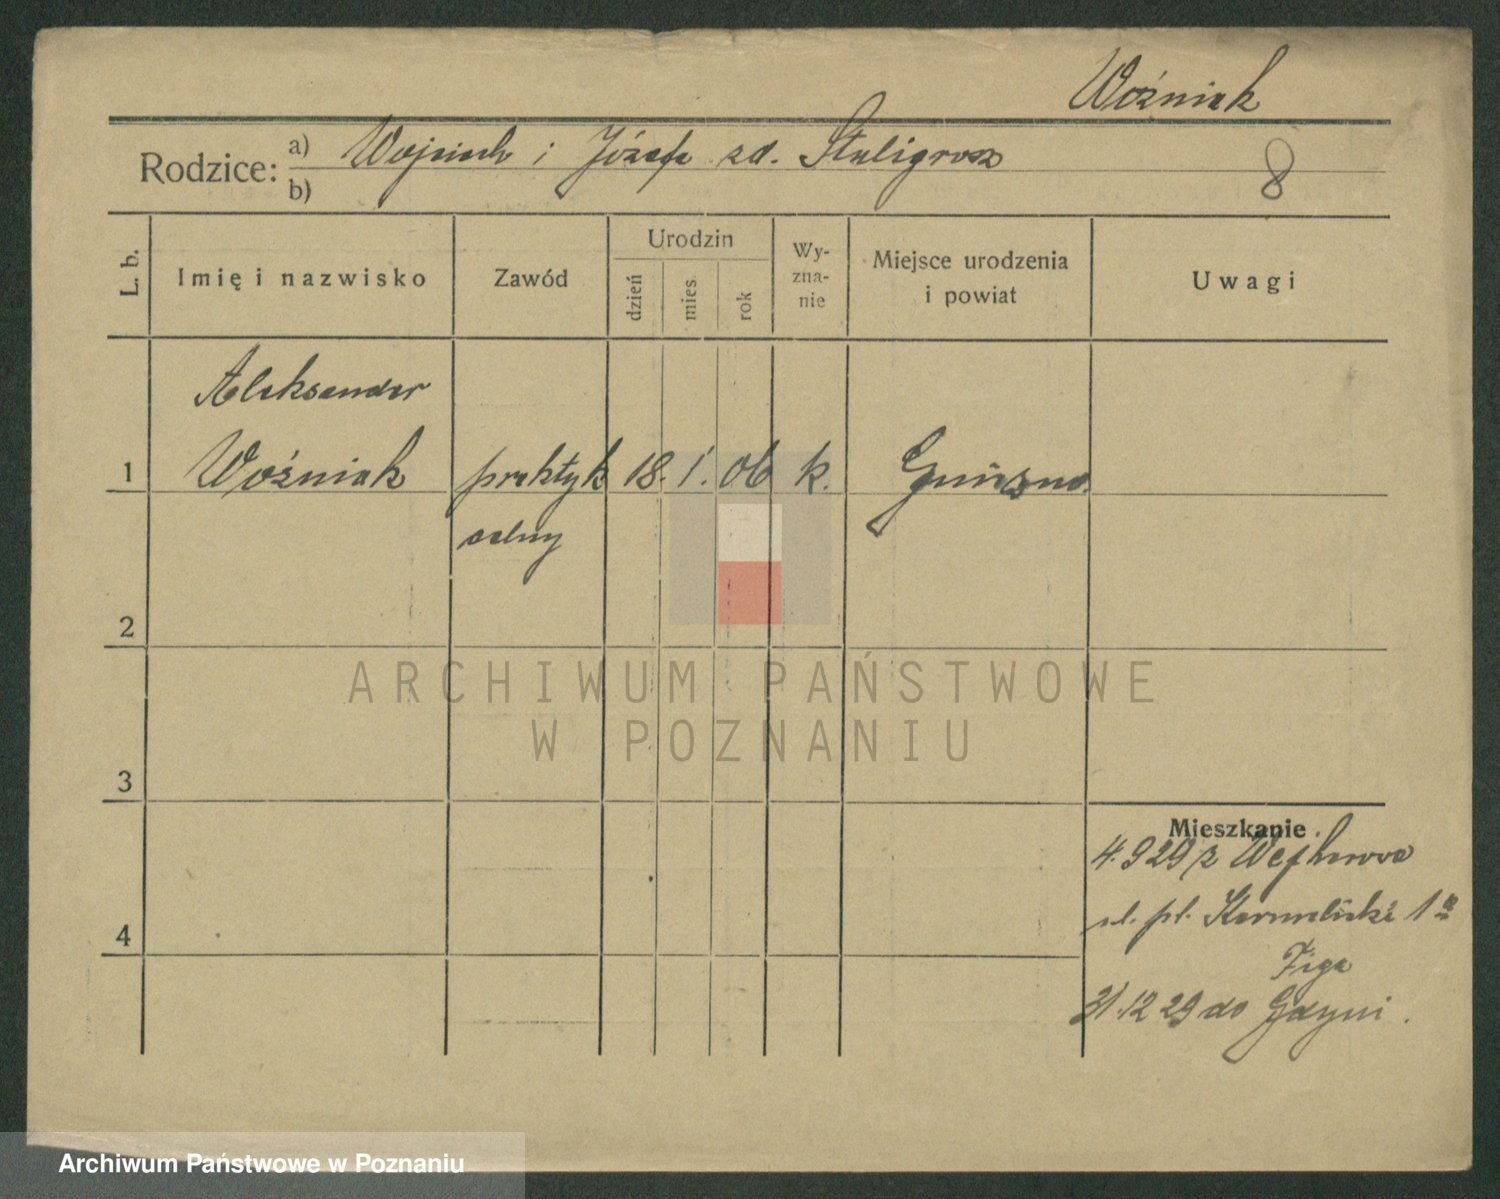 Woźniak
Rodzice: a) Wojciech i Józefa zd. Staligrosz
b)
8
L. b.
Imię i nazwisko
Zawód
Urodzin
dzień
mies.
rok
Wy-
zna-
nie
Miejsce urodzenia
i powiat
Uwagi
Aleksander
1 Woźniak praktyk 18. 1. 06 k. Gniezno.
celny
2
ARCHIWUM PAŃSTWOWE
W POZNANIU
3
Mieszkanie.
4.9 29 z Wejherowa
4 pl. Karmelicki 1
Figa
31.12 29 do Gdyni.
Archiwum Państwowe w Poznaniu